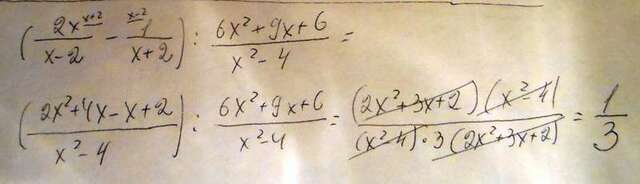 (2x^{x+2}/(x-2) - 1^{x-2}/(x+2)) : (6x²+9x+6)/(x²-4) =
((2x²+4x-x+2)/(x²-4)) : (6x²+9x+6)/(x²-4) = ((2x²+3x+2)(x²-4))/((x²-4)·3(2x²+3x+2)) = 1/3